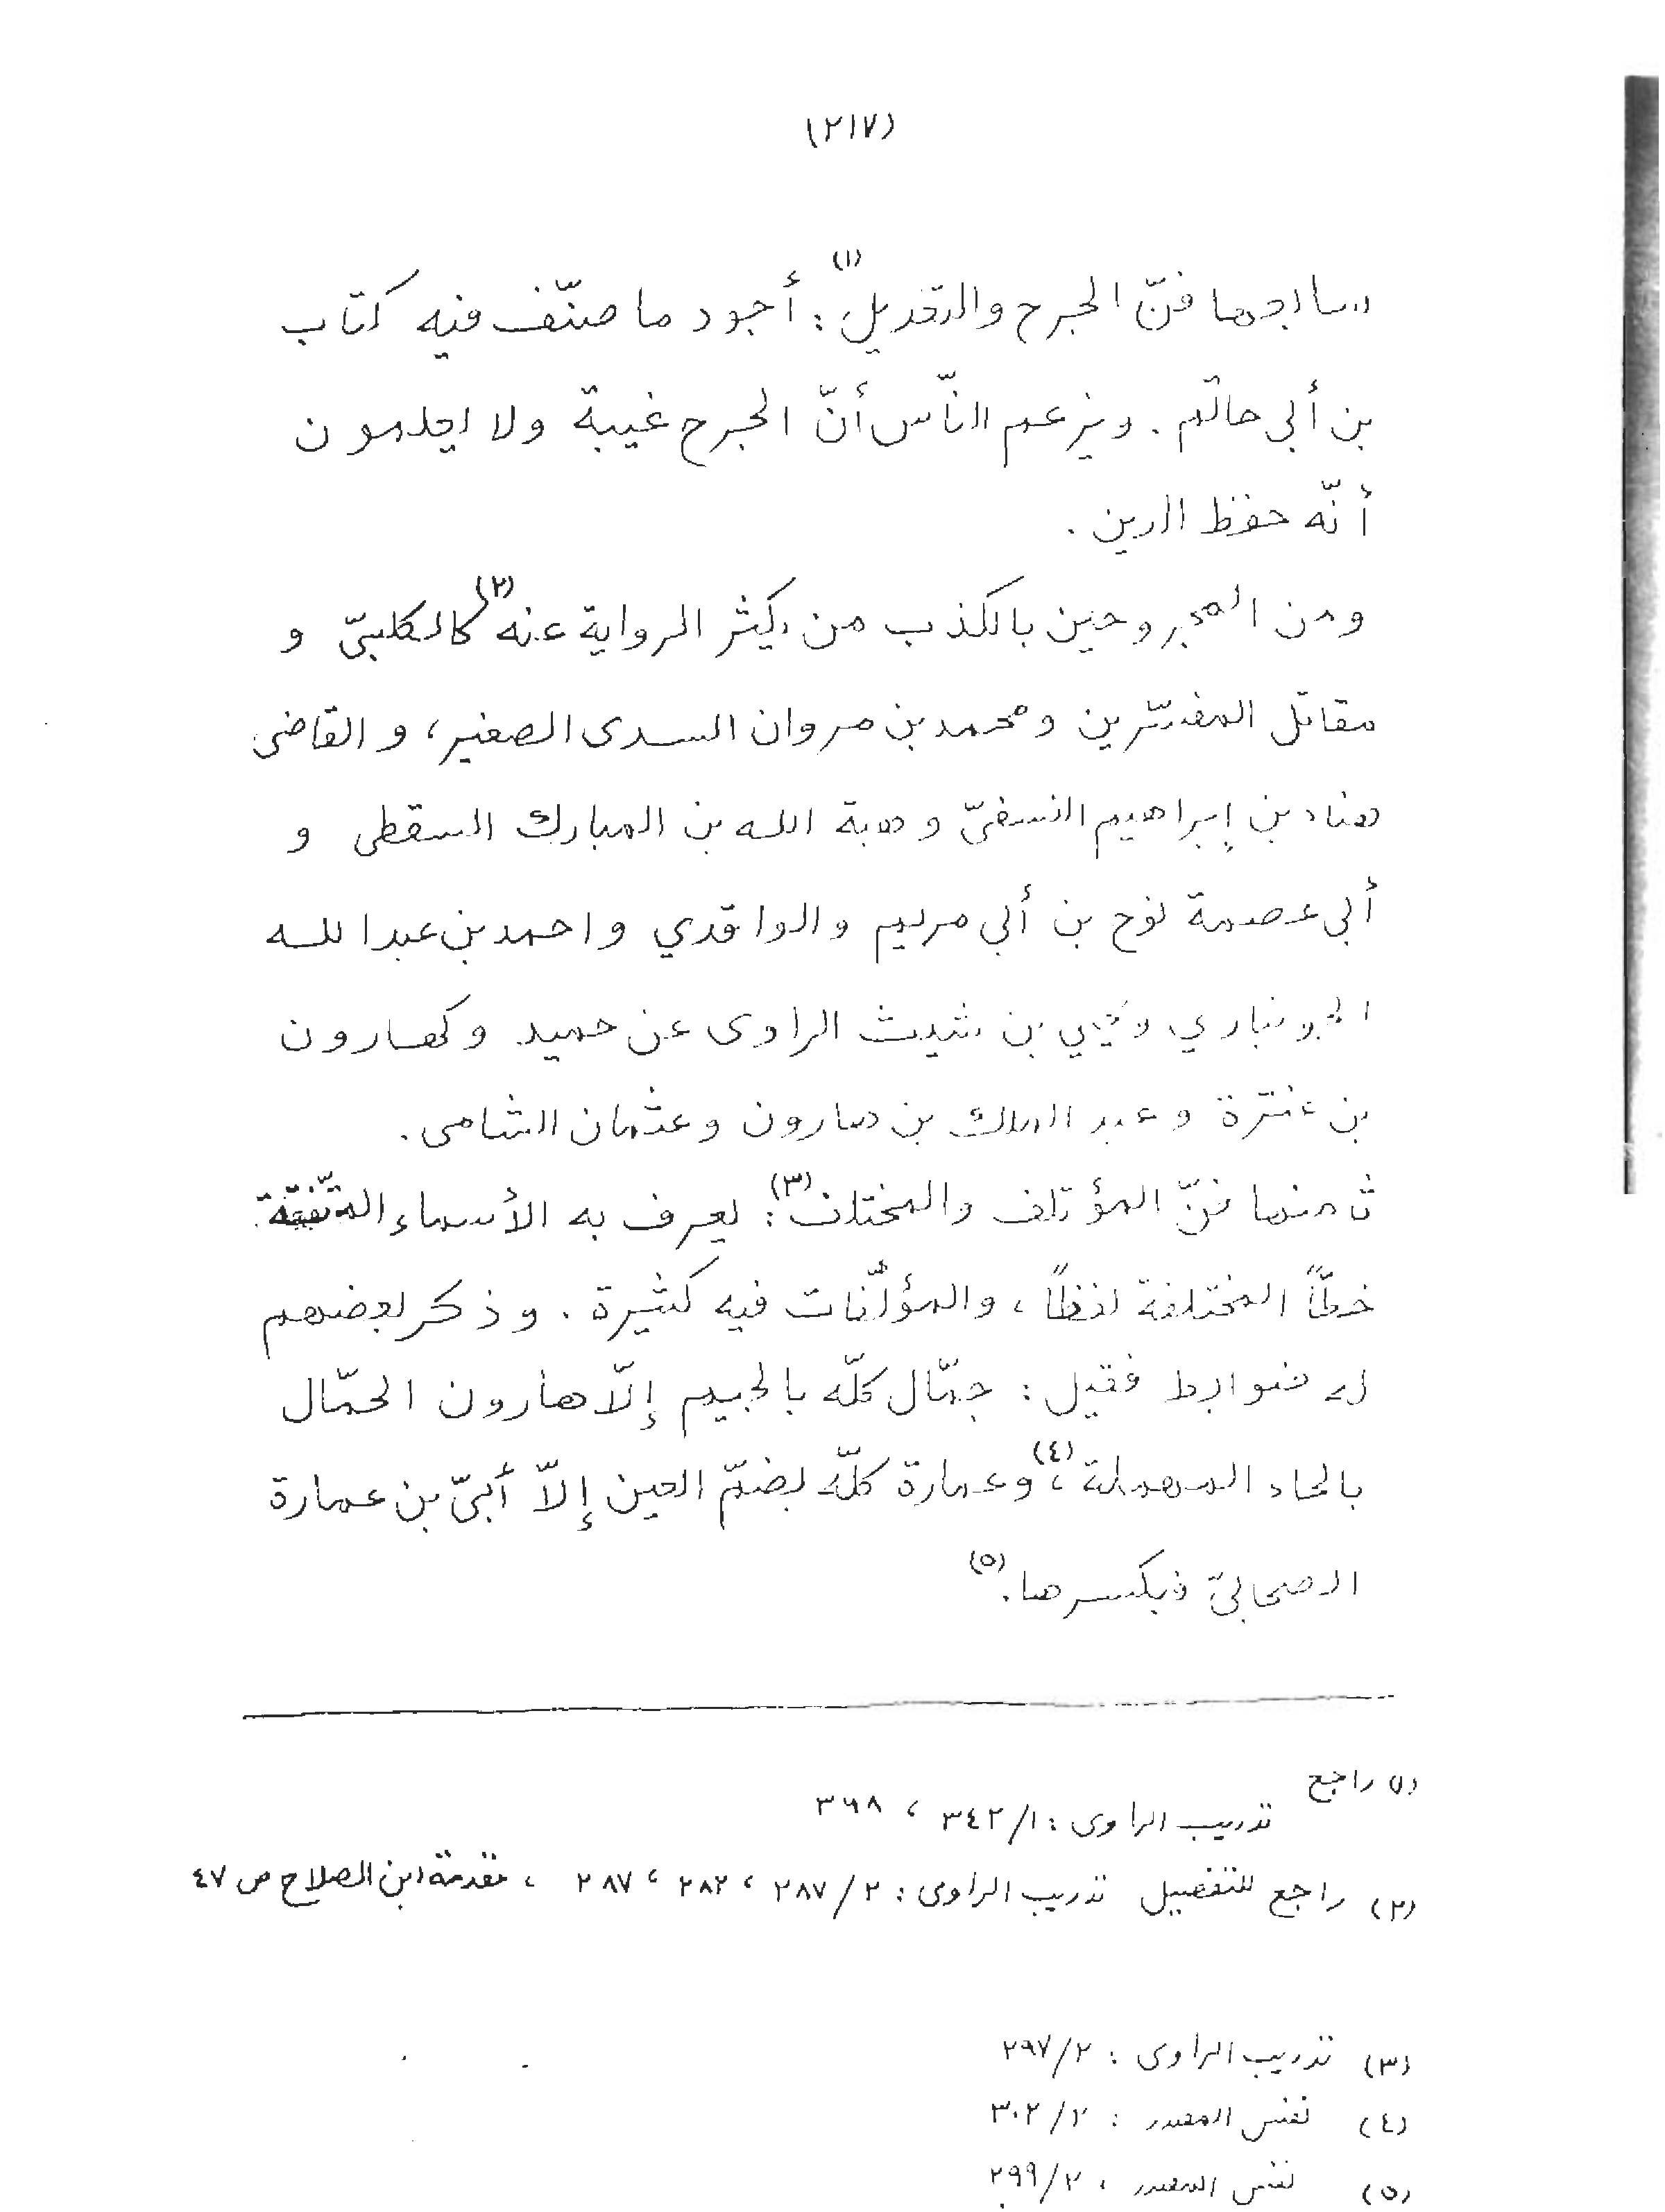 (٢١٧)
سابعها فنّ الجرح والتعديل(١): أجود ما صنّف فيه كتاب
بن أبي حاتم . ويزعم النّاس أنّ الجرح غيبة ولا يعلمون
أنّه حفظ الدين .
ومن المجروحين بالكذب من يكثر الرواية عنه(٢) كالكلبيّ و
مقاتل المفسّرين ومحمد بن مروان السدى الصغير، و القاضى
هناد بن إبراهيم النسفيّ و هبة الله بن المبارك السقطى و
أبي عصمة نوح بن أبي مريم والواقدي واحمد بن عبدالله
الجويباري و بن شيث الراوى عن حميد وكهارون
بن عنترة و عبد الملك بن هارون وعثمان الشامى .
ثامنها فنّ المؤتلف والمختلف(٣): يعرف به الأسماء المتّفقة
خطّاً المختلفة لفظاً، والمؤلّفات فيه كثيرة . وذكر بعضهم
له ضوابط فقيل : جمّال كلّه بالجيم إلّا هارون الحمّال
بالحاء المهملة(٤)، وعمارة كلّه بضمّ العين إلّا أبيّ بن عمارة
الصحابيّ فبكسرها .(٥)
(١) راجع
تدريب الراوى : ٣٤٢/١ ، ٣٦٨
(٢) راجع للتفصيل تدريب الراوى : ٢٨٧/٢ ، ٢٨٢ ، ٢٨٧ ، مقدمة ابن الصلاح ص ٤٧
(٣) تدريب الراوى : ٢٩٧/٢
(٤) نفس المصدر : ٣٠٢/٢
(٥) نفس المصدر : ٢٩٩/٢